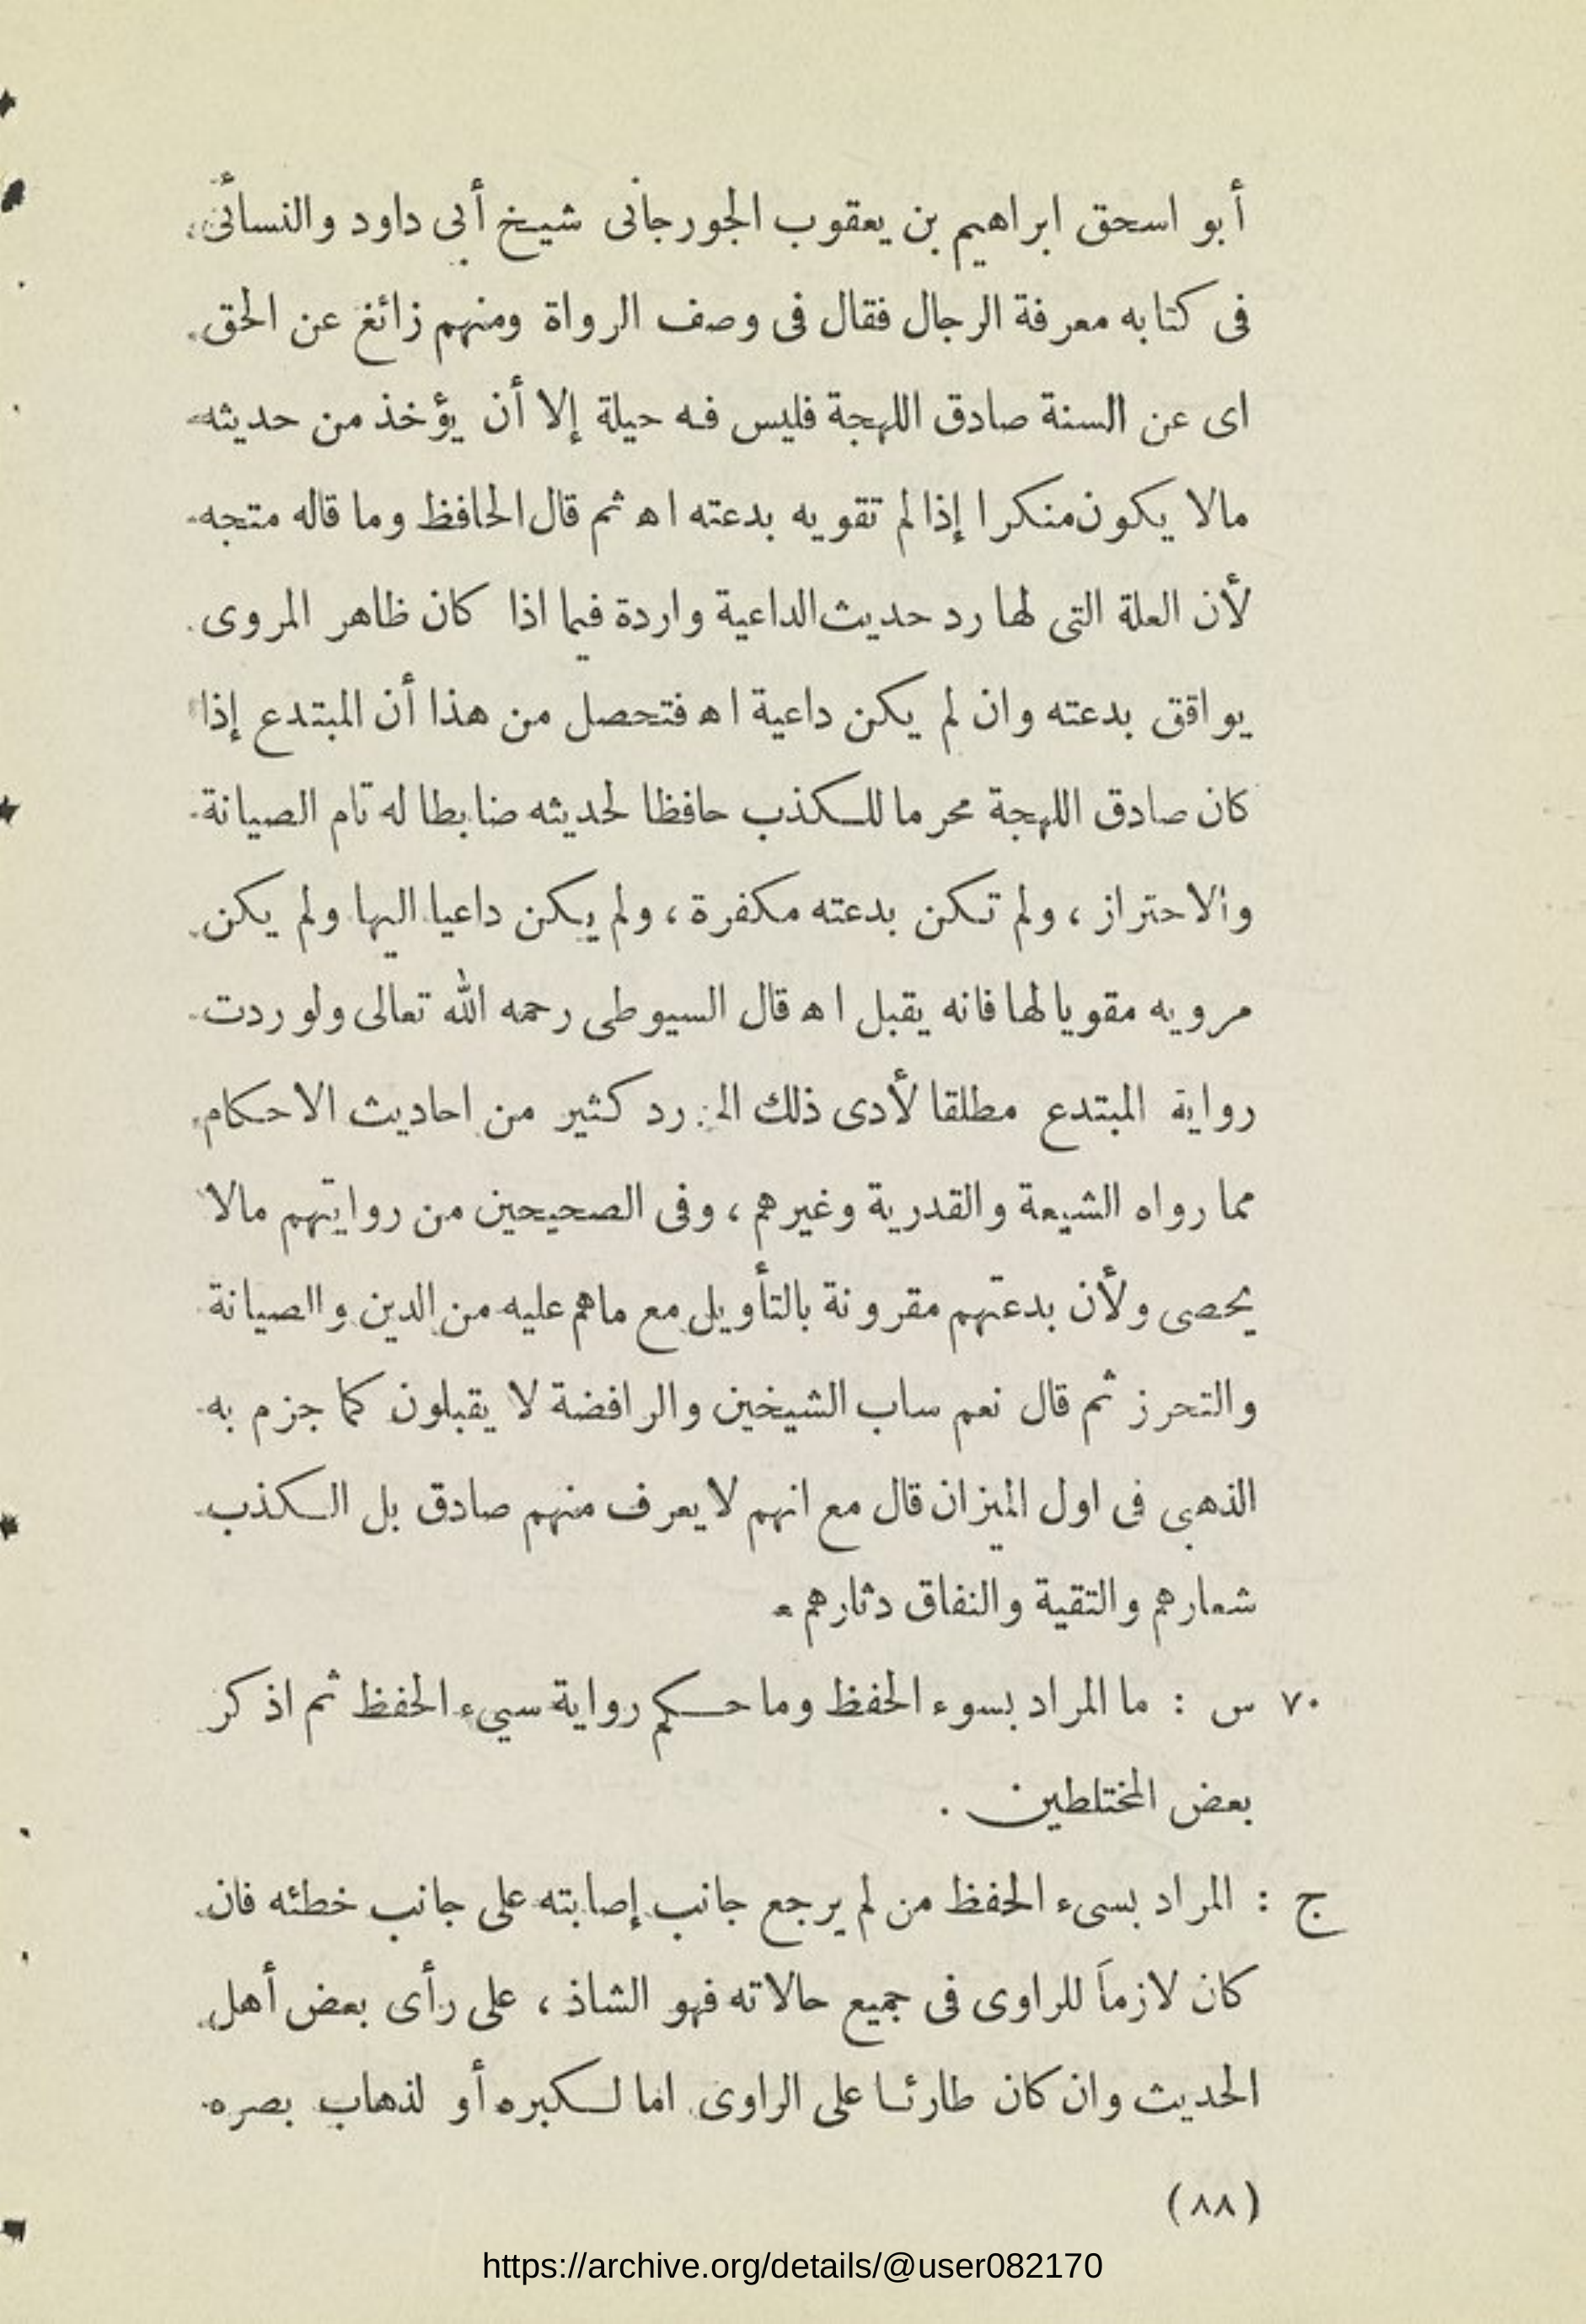 أبو اسحق ابراهيم بن يعقوب الجورجانى شيخ أبى داود والنسائى
فى كتابه معرفة الرجال فقال فى وصف الرواة ومنهم زائغ عن الحق
اى عن السنة صادق اللهجة فليس فـه حيلة إلا أن يؤخذ من حديثه
مالا يكون منكرا إذا لم تقويه بدعته اه ثم قال الحافظ وما قاله متجه
لأن العلة التى لها رد حديث الداعية واردة فيما اذا كان ظاهر المروى
يوافق بدعته وان لم يكن داعية اه فتحصل من هذا أن المبتدع إذا
كان صادق اللهجة محرما للكذب حافظا لحديثه ضابطا له تام الصيانة
والاحتراز ، ولم تكن بدعته مكفرة ، ولم يكن داعيا اليها ولم يكن
مرويه مقويا لها فانه يقبل اه قال السيوطى رحمه الله تعالى ولو ردت
رواية المبتدع مطلقا لأدى ذلك الى رد كثير من احاديث الاحكام
مما رواه الشيعة والقدرية وغيرهم ، وفى الصحيحين من روايتهم مالا
يحصى ولأن بدعتهم مقرونة بالتأويل مع ماهم عليه من الدين والصيانة
والتحرز ثم قال نعم ساب الشيخين والرافضة لا يقبلون كما جزم به
الذهبى فى اول الميزان قال مع انهم لا يعرف منهم صادق بل الكذب
شعارهم والتقية والنفاق دثارهم
٧٠ س : ما المراد بسوء الحفظ وما حكم رواية سيىء الحفظ ثم اذكر
بعض المختلطين .
ج : المراد بسىء الحفظ من لم يرجع جانب إصابته على جانب خطئه فان
كان لازماً للراوى فى جميع حالاته فهو الشاذ ، على رأى بعض أهل
الحديث وان كان طارئا على الراوى اما لكبره أو لذهاب بصره
(٨٨)
https://archive.org/details/@user082170